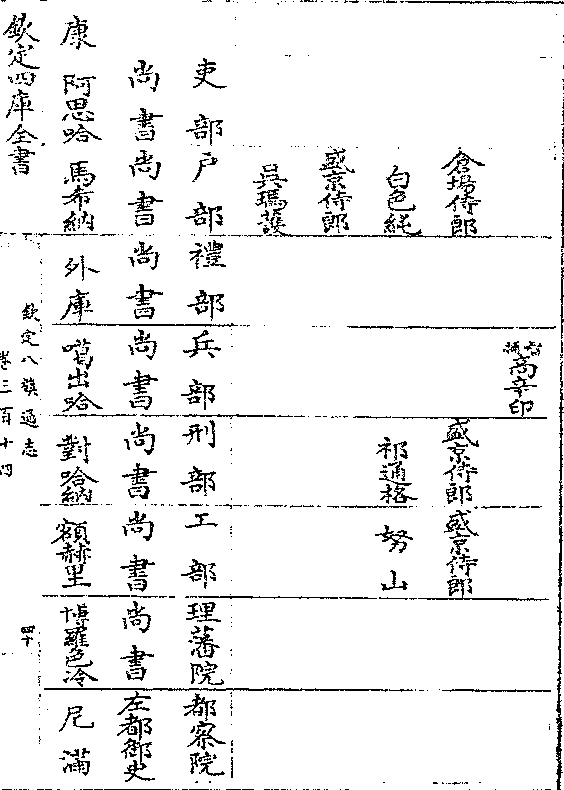 督捕高辛印
倉場侍郎 盛京侍郎 盛京侍郎
白色純 祁通格 努山
盛京侍郎
吳瑪護
吏部 戸部 禮部 兵部 刑部 工部 理藩院 都察院
尚書 尚書 尚書 尚書 尚書 尚書 尚書 左都御史
康 阿思哈 馬希納 外庫 噶出哈 對哈納 額赫里 博羅色冷 尼滿
欽定四庫全書
欽定八旗通志
卷三百十四
四十